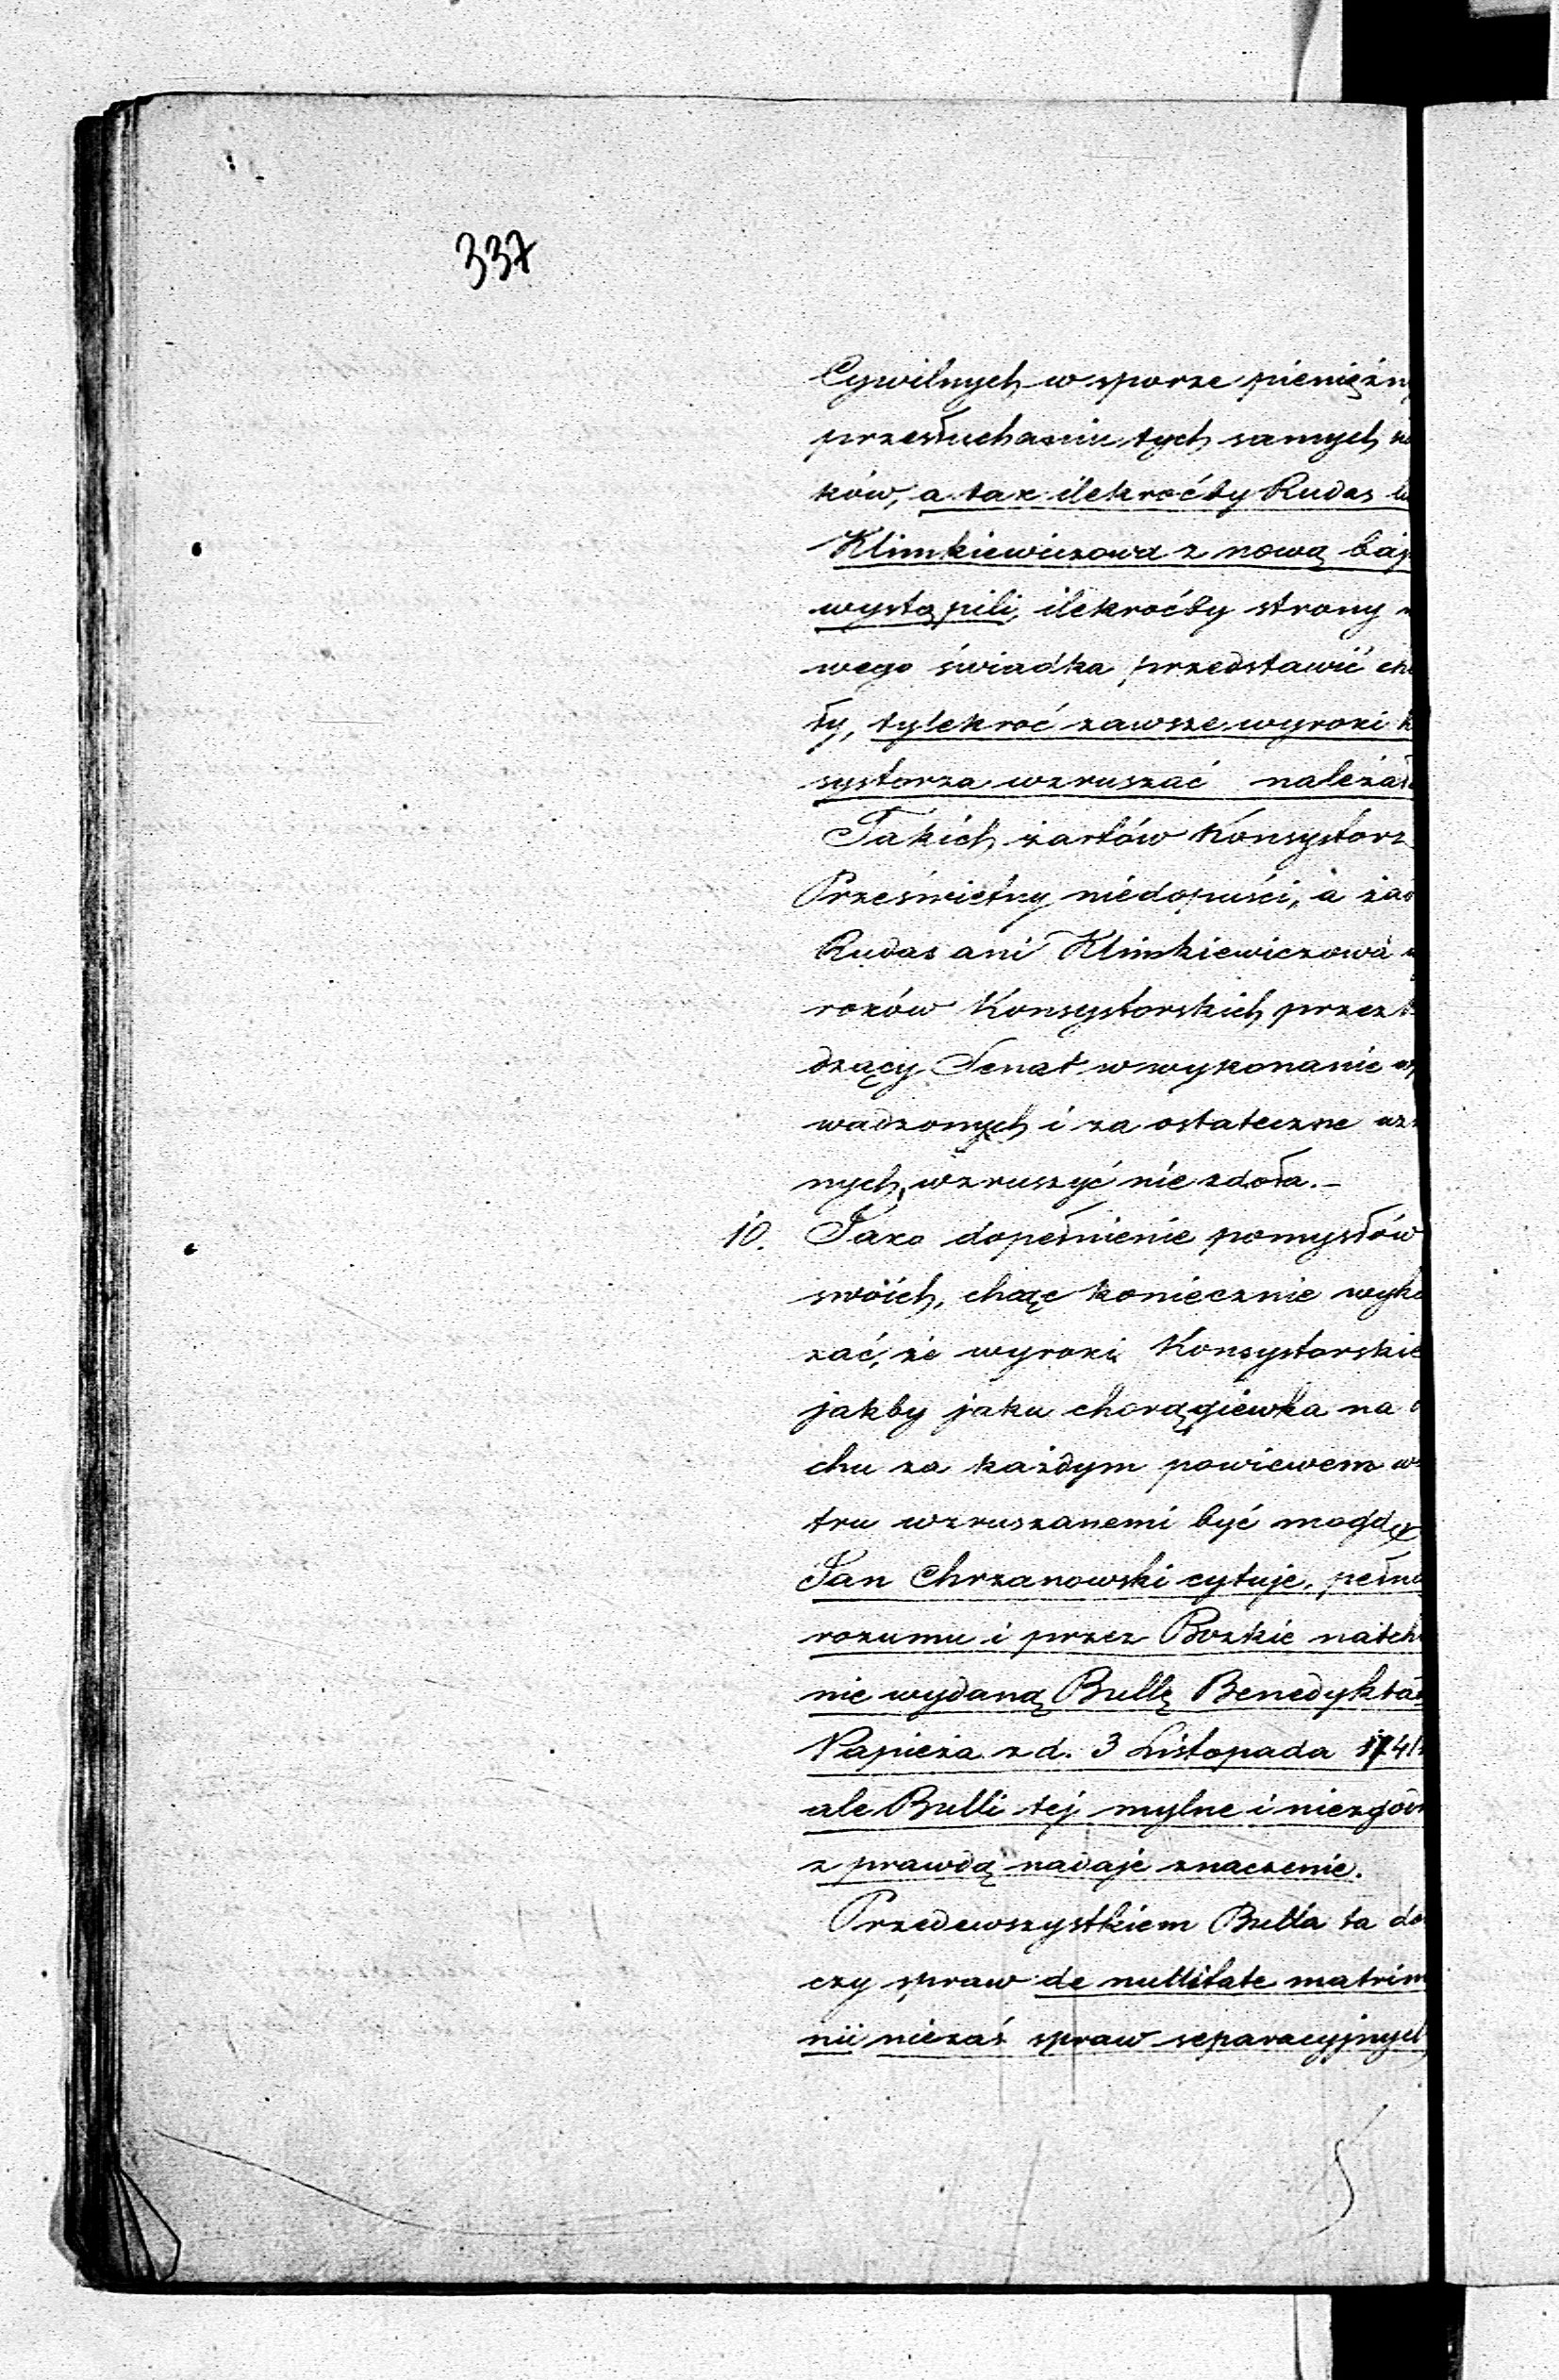 337
Cywilnych, w sporze pieniężn
przesłuchaniu tych samych
ków, a tak ilekroćby Rudas
Klimkiewiczowa z nową baj
wystąpili, ilekroćby strony
wego świadka przedstawić ch
ły, tylekroć zawsze wyroki
systorza wzruszać należał
Takich żartów Konsystorz
Prześwietny niedopuści, a żad
Rudas ani Klimkiewiczowa
roków Konsystorskich przez
dzący Senat w wykonanie
wadzonych i za ostateczne uz
nych, wzruszyć nie zdoła.-
10. Jako dopełnienie pomysłów
swoich, chcąc koniecznie wyka
zać, że wyroki Konsystorskie
jakby jaka chorągiewka na
chu za każdym powiewem w
tru wzruszanemi być mogą
Jan Chrzanowski cytuje, pełną
rozumu i przez Bozkie natch
nie wydaną Bullę Benedykta
Papieża z d. 3 Listopada 1741
ale Bulli tej mylne i niezgod
z prawdą nadaje znaczenie.
Przedewszystkiem Bulla ta do
czy spraw de nullitate matrim
nii niezaś spraw separacyjnych